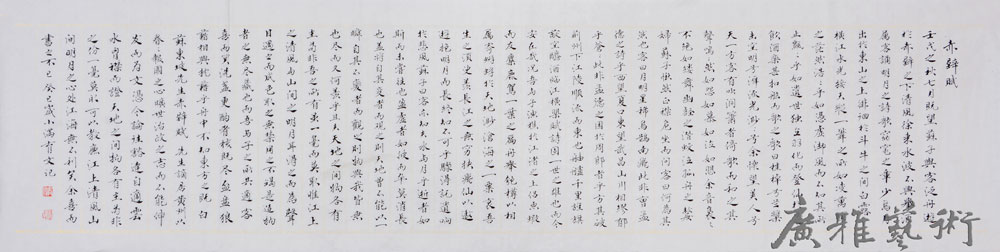 赤辟賦
壬戌之秋七月既望蘇子與客泛舟遊
於赤辟之下清風徐來水波不興舉酒
屬客誦明月之詩歌窈窕之章少焉月
出於東山之上徘徊於斗牛之間白露
橫江水光接天縱一葦之所如凌萬頃
之茫然浩浩乎如憑虛御風而不知其所
止飄飄乎如遺世獨立羽化而登仙於是
飲酒樂甚扣舷而歌之歌曰桂棹兮蘭槳
擊空明兮溯流光渺渺兮余懷望美人兮
天一方客有吹洞簫者倚歌而和之其
聲嗚嗚然如怨如慕如泣如訴餘音裊裊
不絕如縷舞幽壑之潛蛟泣孤舟之嫠
婦蘇子愀然正襟危坐而問客曰何為其
然也客曰月明星稀烏鵲南飛此非曹孟
德之詩乎西望夏口東望武昌山川相繆鬱
乎蒼蒼此非孟德之困於周郎者乎方其破
荊州下江陵順流而東也舳艫千里旌旗
蔽空釃酒臨江橫槊賦詩固一世之雄也而今
安在哉況吾與子漁樵於江渚之上侶魚蝦
而友麋鹿駕一葉之扁舟舉匏樽以相
屬寄蜉蝣於天地渺滄海之一粟哀吾
生之須臾羨長江之無窮挾飛仙以遨
遊抱明月而長終知不可乎驟得託遺響
於悲風蘇子曰客亦知夫水與月乎逝者如
斯而未嘗往也盈虛者如彼而卒莫消長
也蓋將自其變者而觀之則天地曾不能以一
瞬自其不變者而觀之則物與我皆無
盡也而又何羨乎且夫天地之間物各有
主苟非吾之所有雖一毫而莫取惟江上
之清風與山間之明月耳得之而為聲
目遇之而成色取之無禁用之不竭是造物
者之無盡藏也而吾與子之所共適客
喜而笑洗盞更酌肴核既盡杯盤狼
藉相與枕藉乎舟中不知東方之既白
蘇東坡先生赤辟賦 先生謫居黃州以
報國之曠世治政之才而不能伸
友而為文憑今論往豁達自適
水月而證天地之間物各有主苟非
之份一毫莫取江上清風山
間明月之心處江海無不利矣余喜而
書之不已癸巳歲小滿有文記
廣雅藝術